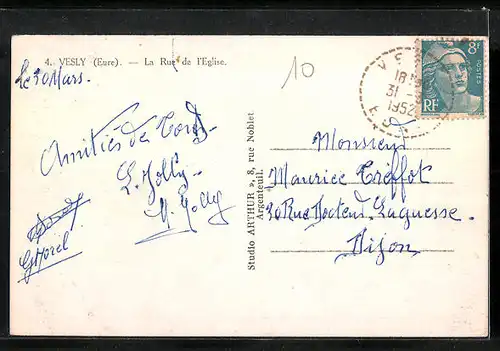 4. VESLY (Eure). — La Rue de l'Eglise.
Le 30 Mars.
Amitiés de Tous
L. Jolly
Y. Jolly
G Morel
10
Studio ARTHUR », 8, rue Noblet
Argenteuil.
18
31 -
1952
8F
POSTES
RF
Monsieur
Maurice Tréffot
30 Rue Docteur Laguesse.
Dijon